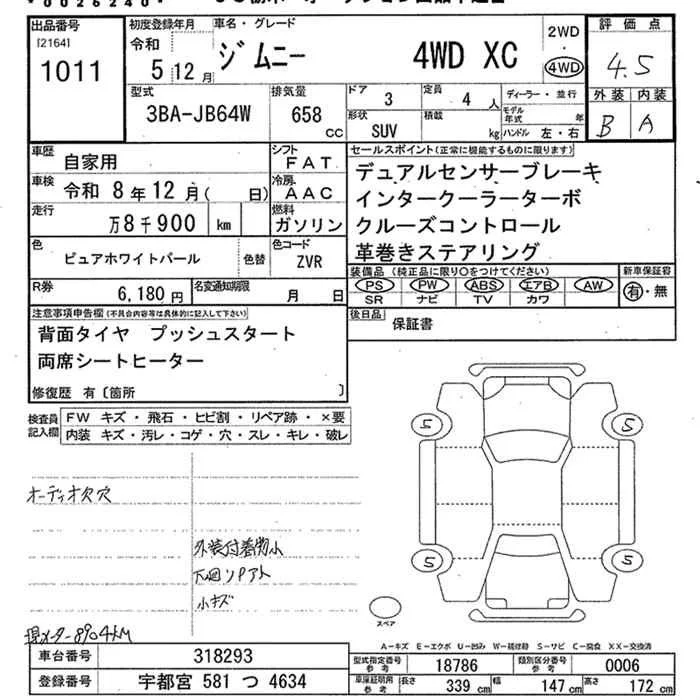 *0026240*
出品番号
[2164]
1011
初度登録年月
令和
5年12月
車名・グレード
ジムニー 4WD XC
2WD
・
4WD
評価点
4.5
外装 内装
B A
型式
3BA-JB64W
排気量
658
CC
ドア
3
定員
4人
ディーラー・並行
形状
SUV
積載
kg
モデル年式
年
ハンドル 左・右
車歴
自家用
シフト
FAT
車検
令和 8年12月( 日)
冷房
AAC
走行
万8千900 km
燃料
ガソリン
色
ピュアホワイトパール
色替
色コード
ZVR
R券
6,180円
名変通知期限
月 日
セールスポイント(正常に機能するものに限ります)
デュアルセンサーブレーキ
インタークーラーターボ
クルーズコントロール
革巻きステアリング
装備品(純正品に限り○をつけてください)
PS PW ABS エアB AW
SR ナビ TV カワ
新車保証書
有・無
後日品
保証書
注意事項申告欄(不具合内容等は具体的に記入して下さい)
背面タイヤ プッシュスタート
両席シートヒーター
修復歴 有〔箇所 〕
検査員
記入欄
FW キズ・飛石・ヒビ割・リペア跡・×要
内装 キズ・汚レ・コゲ・穴・スレ・キレ・破レ
オーディオ欠穴
外装付着物小
下回リサビ
小キズ
現メーター8904KM
5 5
5 5
スペア
A-キズ E-エクボ U-凹み W-補修跡 S-サビ C-腐食 XX-交換済
車台番号
318293
登録番号
宇都宮 581 つ 4634
型式指定番号
参考
18786
類別区分番号
参考
0006
車庫証明用
参考
長さ
339 cm
幅
147 cm
高さ
172 cm